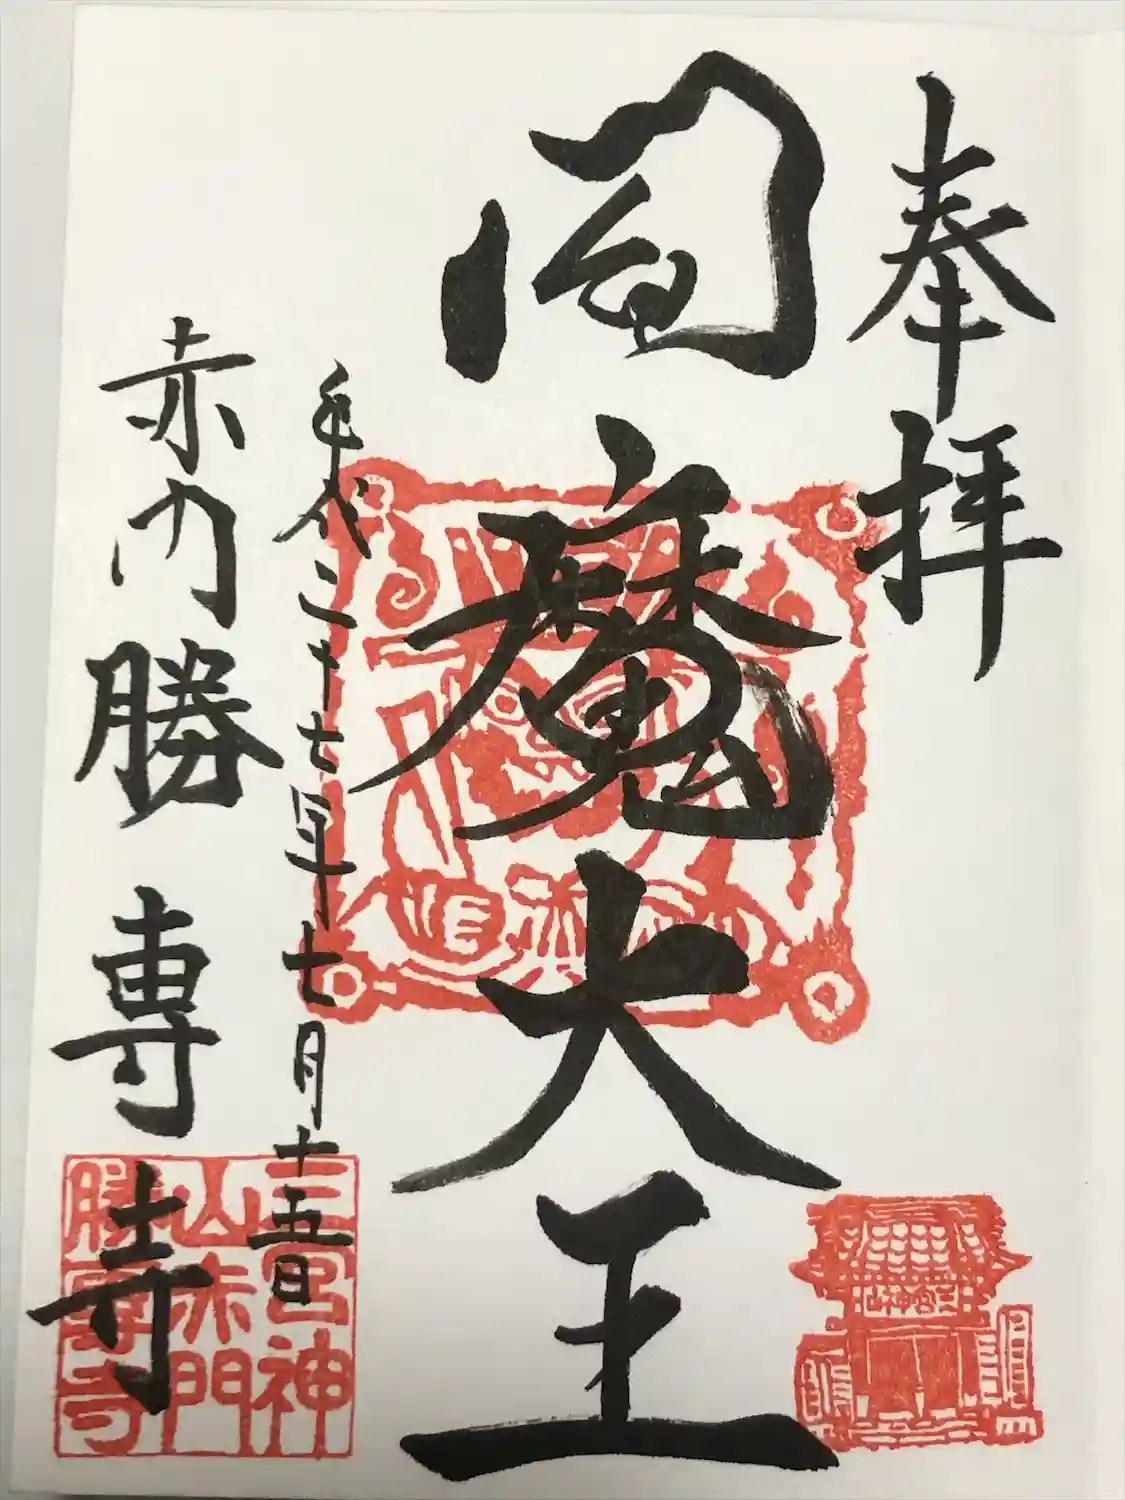 奉拝
閻魔大王
平成二十七年七月十五日
赤門勝専寺
三宮神
山赤門
勝専寺
三宮神山